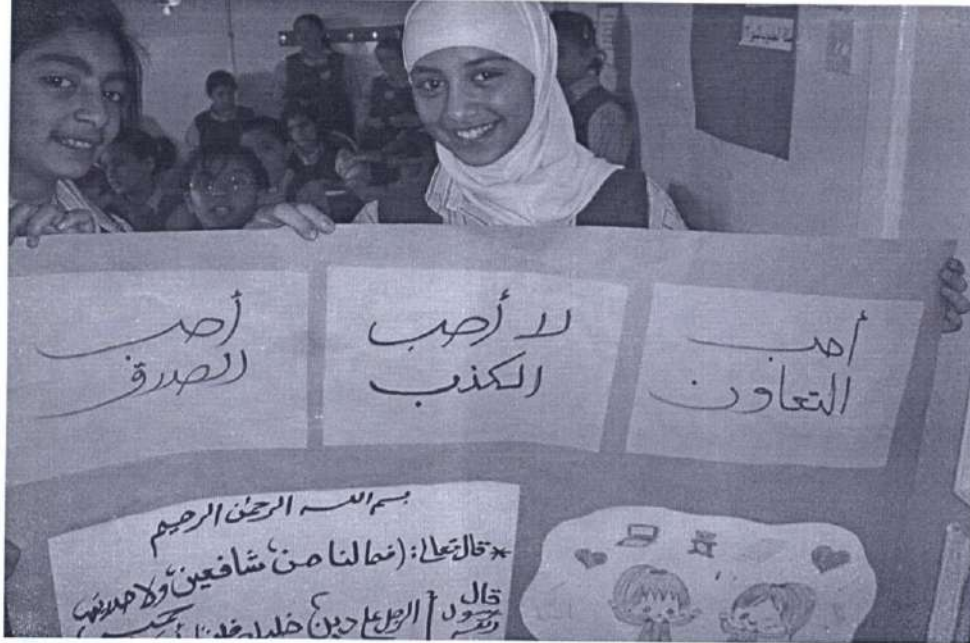 أحب
التعاون
لا أحب
الكذب
أحب
الصدق
بسم الله الرحمن الرحيم
* قال تعالى: (فما لنا من شافعين ولا صديق
قال رسول الرجل على دين خليله